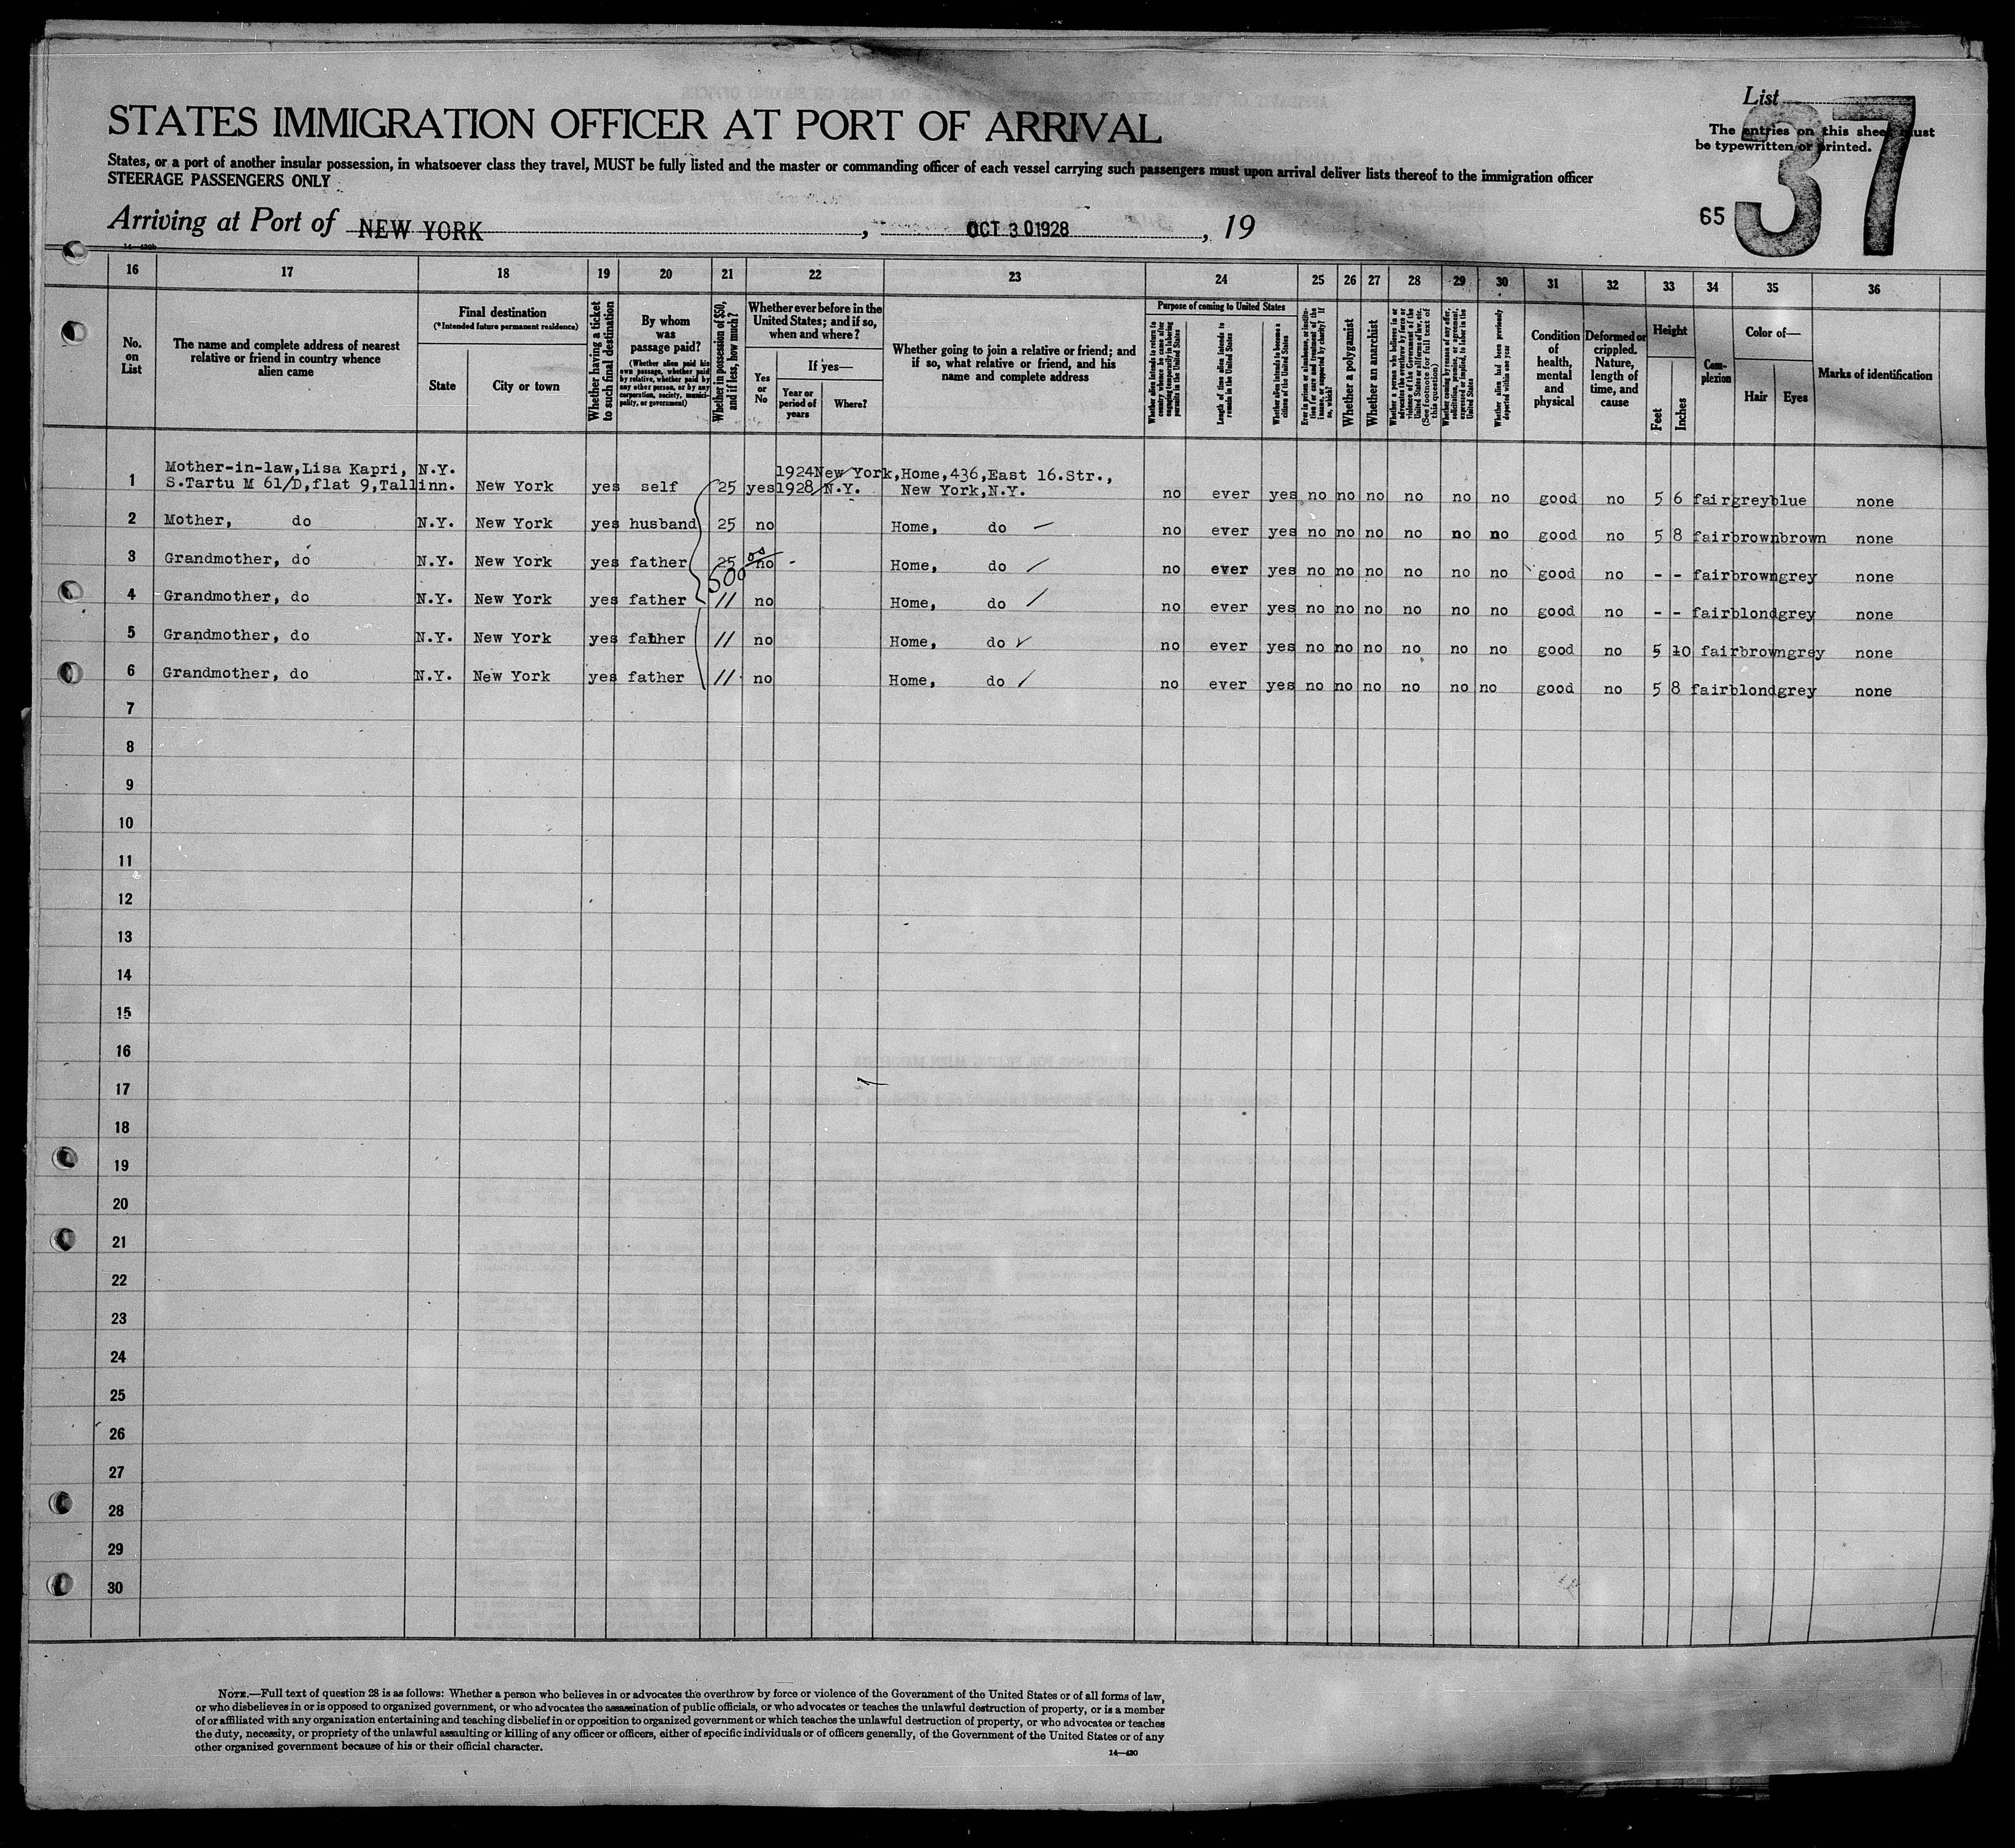 List
The entries on this sheet must
be typewritten or printed.
37
65
STATES IMMIGRATION OFFICER AT PORT OF ARRIVAL
States, or a port of another insular possession, in whatsoever class they travel, MUST be fully listed and the master or commanding officer of each vessel carrying such passengers must upon arrival deliver lists thereof to the immigration officer
STEERAGE PASSENGERS ONLY
Arriving at Port of NEW YORK, OCT 3 0 1928, 19
16 17 18 19 20 21 22 23 24 25 26 27 28 29 30 31 32 33 34 35 36
No. on List
The name and complete address of nearest relative or friend in country whence alien came
Final destination
(*Intended future permanent residence)
State
City or town
Whether having a ticket to such final destination
By whom was passage paid?
(Whether alien paid his own passage, whether paid by relative, whether paid by any other person, or by any corporation, society, municipality, or government)
Whether in possession of $50, and if less, how much?
Whether ever before in the United States; and if so, when and where?
Yes or No
If yes—
Year or period of years
Where?
Whether going to join a relative or friend; and if so, what relative or friend, and his name and complete address
Purpose of coming to United States
Whether alien intends to return to country whence he came after engaging temporarily in laboring pursuits in the United States
Length of time alien intends to remain in the United States
Whether alien intends to become a citizen of the United States
Ever in prison or almshouse, or institution for care and treatment of the insane, or supported by charity? If so, which?
Whether a polygamist
Whether an anarchist
Whether a person who believes in or advocates the overthrow by force or violence of the Government of the United States or all forms of law, etc. (See footnote for full text of this question)
Whether coming by reason of any offer, solicitation, promise, or agreement, expressed or implied, to labor in the United States
Whether alien had been previously deported within one year
Condition of health, mental and physical
Deformed or crippled. Nature, length of time, and cause
Height
Feet
Inches
Complexion
Color of—
Hair
Eyes
Marks of identification
1 Mother-in-law,Lisa Kapri, N.Y. 1924 New York,Home,436,East 16.Str.,
S.Tartu M 61/D,flat 9,Tallinn. New York yes self 25 yes 1928 N.Y. New York,N.Y. no ever yes no no no no no no good no 5 6 fair grey blue none
2 Mother, do N.Y. New York yes husband 25 no Home, do no ever yes no no no no no no good no 5 8 fair brown brown none
3 Grandmother, do N.Y. New York yes father 25 no Home, do no ever yes no no no no no no good no - - fair brown grey none
500
4 Grandmother, do N.Y. New York yes father // no Home, do no ever yes no no no no no no good no - - fair blond grey none
5 Grandmother, do N.Y. New York yes father // no Home, do no ever yes no no no no no no good no 5 10 fair brown grey none
6 Grandmother, do N.Y. New York yes father // no Home, do no ever yes no no no no no no good no 5 8 fair blond grey none
7
8
9
10
11
12
13
14
15
16
17
18
19
20
21
22
23
24
25
26
27
28
29
30
NOTE.—Full text of question 28 is as follows: Whether a person who believes in or advocates the overthrow by force or violence of the Government of the United States or of all forms of law,
or who disbelieves in or is opposed to organized government, or who advocates the assassination of public officials, or who advocates or teaches the unlawful destruction of property, or is a member
of or affiliated with any organization entertaining and teaching disbelief in or opposition to organized government or which teaches the unlawful destruction of property, or who advocates or teaches
the duty, necessity, or propriety of the unlawful assaulting or killing of any officer or officers, either of specific individuals or of officers generally, of the Government of the United States or of any
other organized government because of his or their official character.
14—430